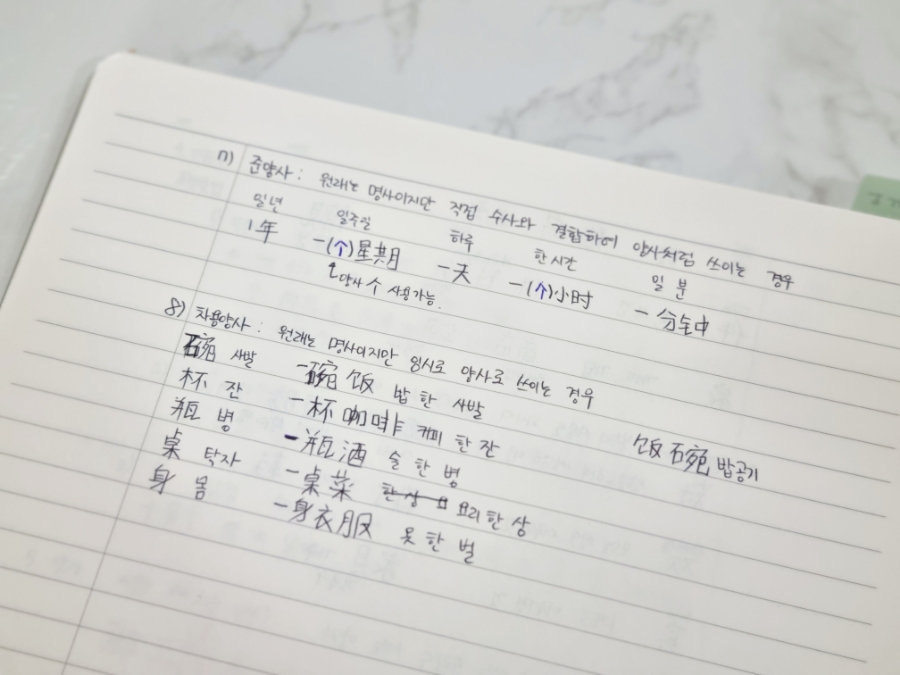 7) 준양사 : 원래는 명사이지만 직접 수사와 결합하여 양사처럼 쓰이는 경우
일년 일주일 하루 한 시간 일 분
1年 一(个)星期 一天 一(个)小时 一分钟
양사 个 사용가능.
8) 차용양사 : 원래는 명사이지만 임시로 양사로 쓰이는 경우
碗 사발 一碗饭 밥 한 사발
杯 잔 一杯咖啡 커피 한 잔 饭碗 밥공기
瓶 병 一瓶酒 술 한 병
桌 탁자 一桌菜 요리 한 상
身 몸 一身衣服 옷 한 벌